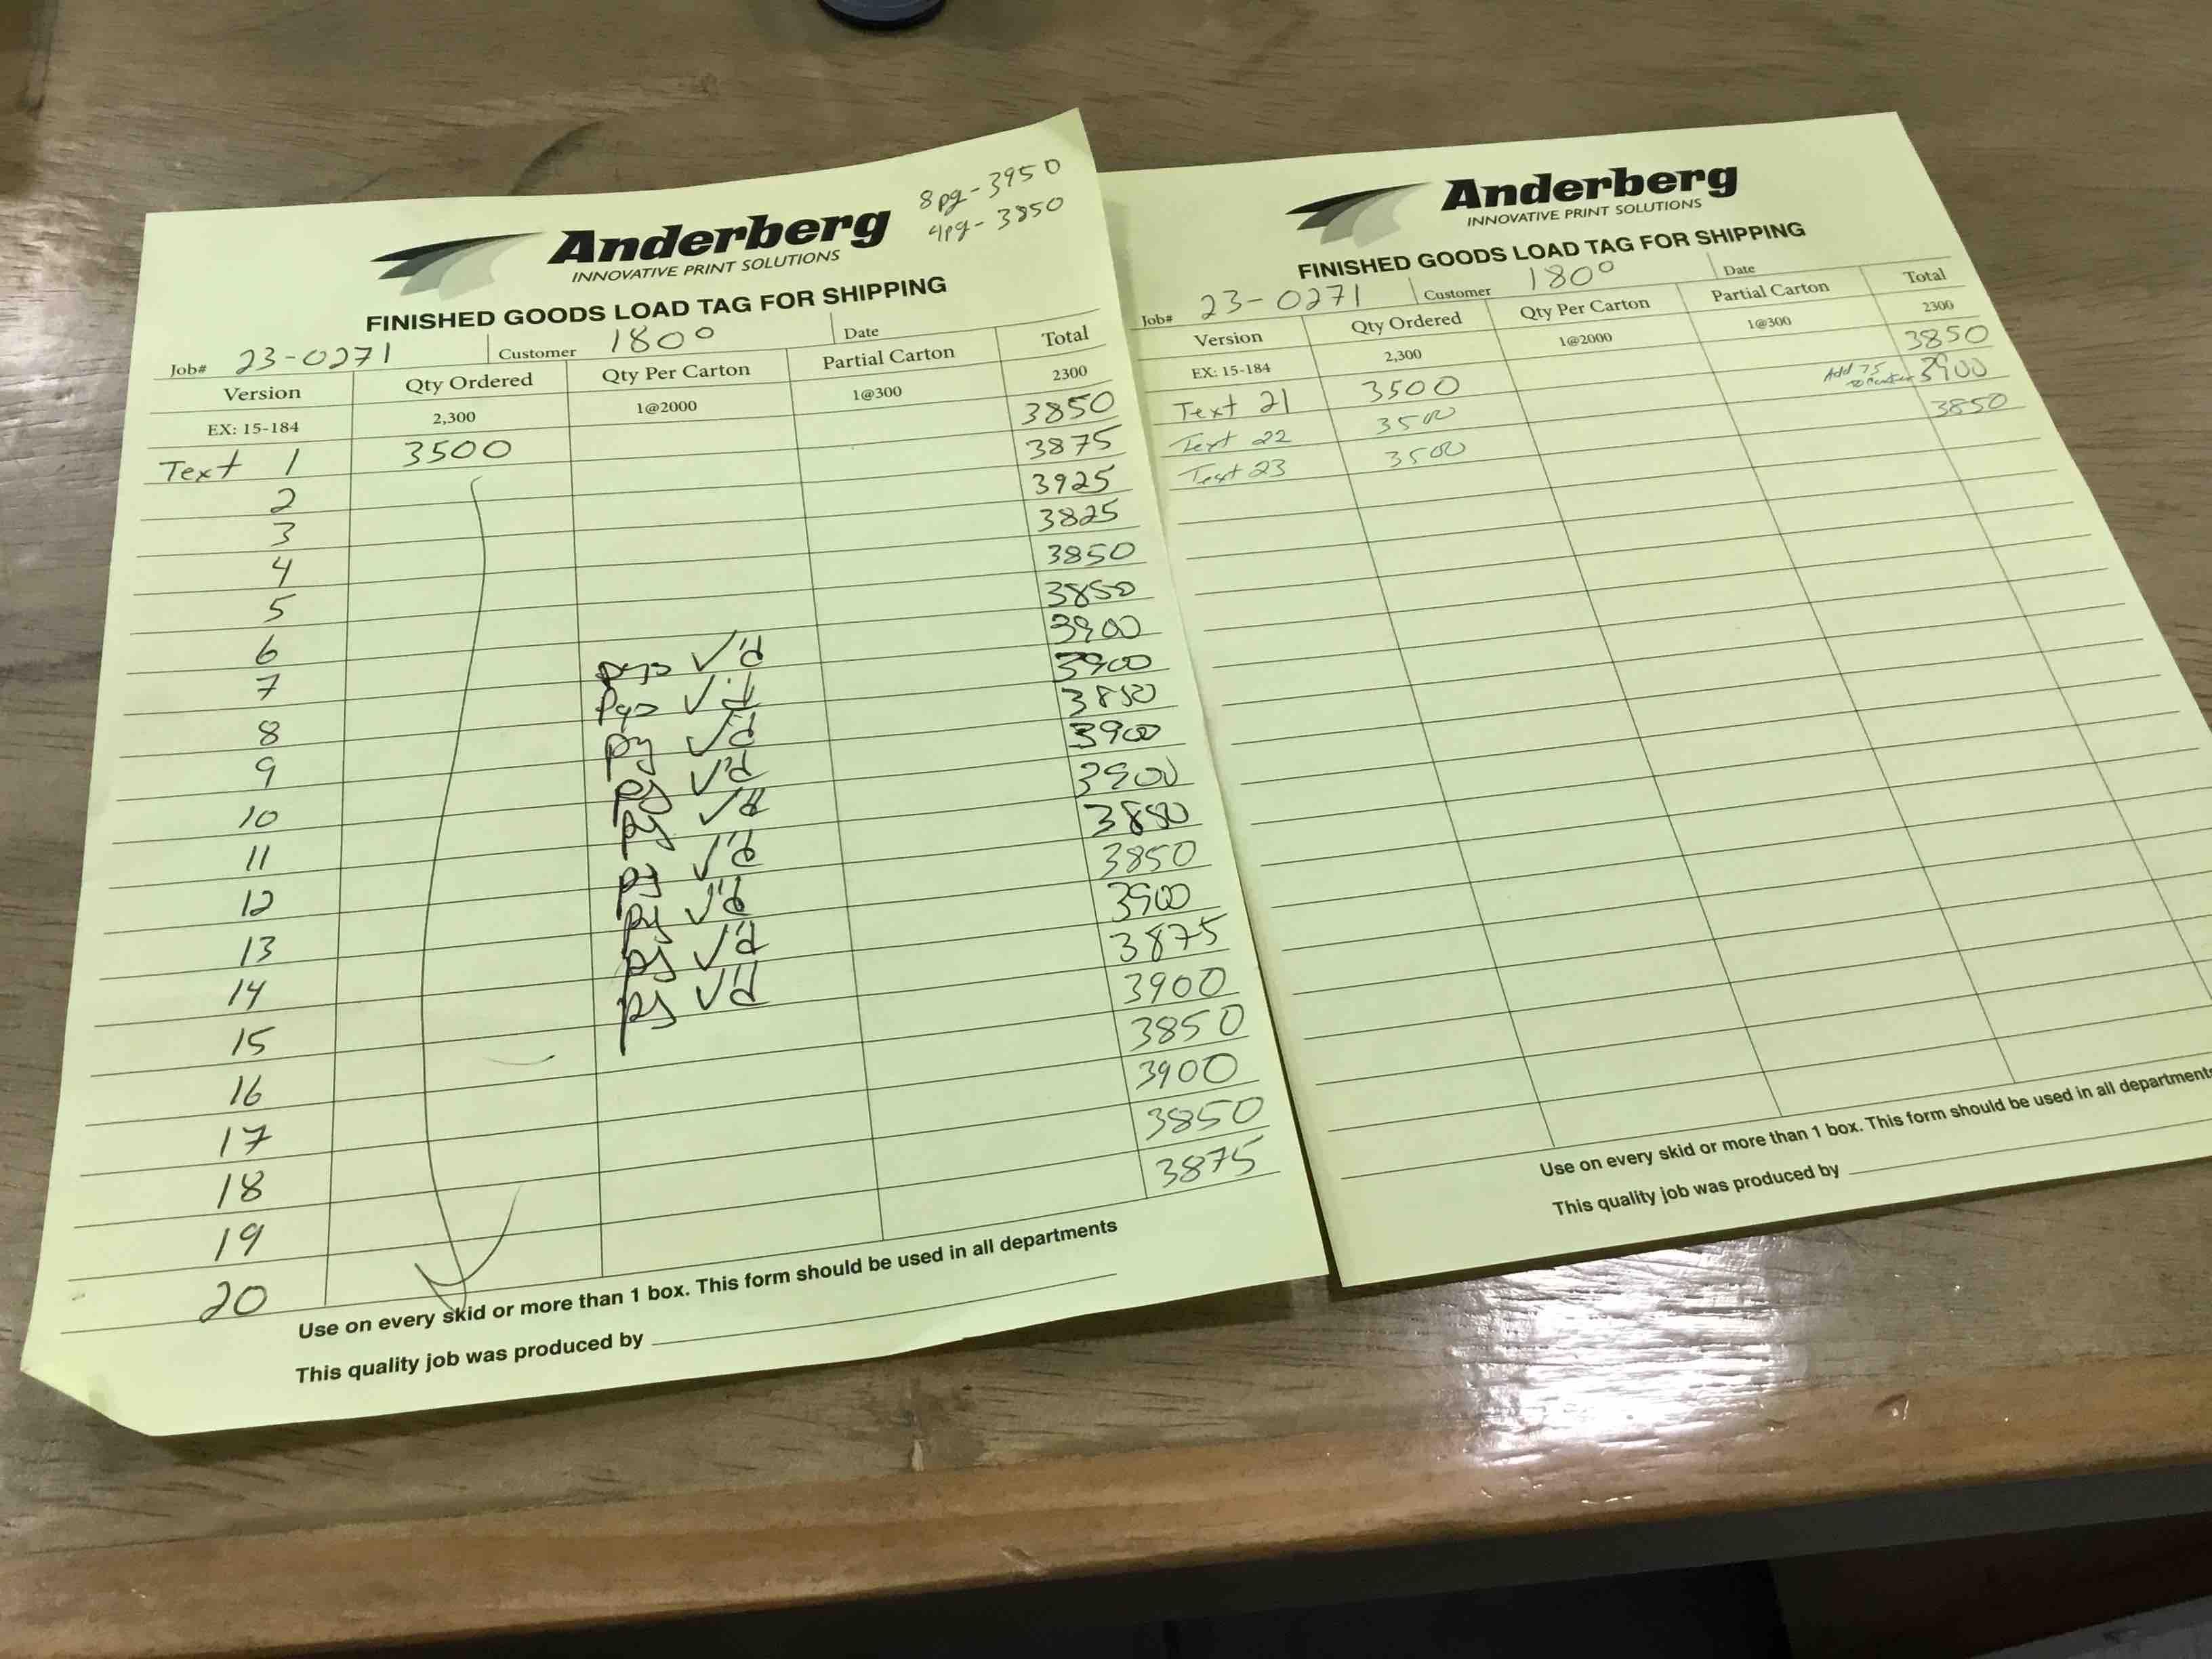 8pg - 3950
4pg - 3850
Anderberg
INNOVATIVE PRINT SOLUTIONS
FINISHED GOODS LOAD TAG FOR SHIPPING
Job# 23-0271 Customer 1800 Date
Version Qty Ordered Qty Per Carton Partial Carton Total
EX: 15-184 2,300 1@2000 1@300 2300
Text 1 3500 3850
2 3875
3 3925
4 3825
5 3850
6 3850
7 pgs ✓'d 3900
8 pgs ✓'d 3900
9 pg ✓'d 3850
10 pg ✓'d 3900
11 pg ✓'d 3900
12 pg ✓'d 3850
13 pg ✓'d 3850
14 pg ✓'d 3900
15 pg ✓'d 3875
16 3900
17 3850
18 3900
19 3850
20 3875
Use on every skid or more than 1 box. This form should be used in all departments
This quality job was produced by
Anderberg
INNOVATIVE PRINT SOLUTIONS
FINISHED GOODS LOAD TAG FOR SHIPPING
Job# 23-0271 Customer 1800 Date
Version Qty Ordered Qty Per Carton Partial Carton Total
EX: 15-184 2,300 1@2000 1@300 2300
Text 21 3500 3850
Text 22 3500 Add 75 3900
Text 23 3500 3850
Use on every skid or more than 1 box. This form should be used in all departments
This quality job was produced by